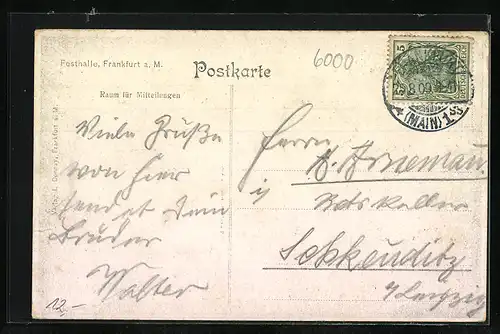 Festhalle, Frankfurt a. M.
Postkarte
6000
Raum für Mitteilungen
Viele Grüße
von hier
sendet Dein
Bruder
Walter
Herrn
Ratskeller
Schkeuditz
Leipzig
(MAIN) 1
12,-